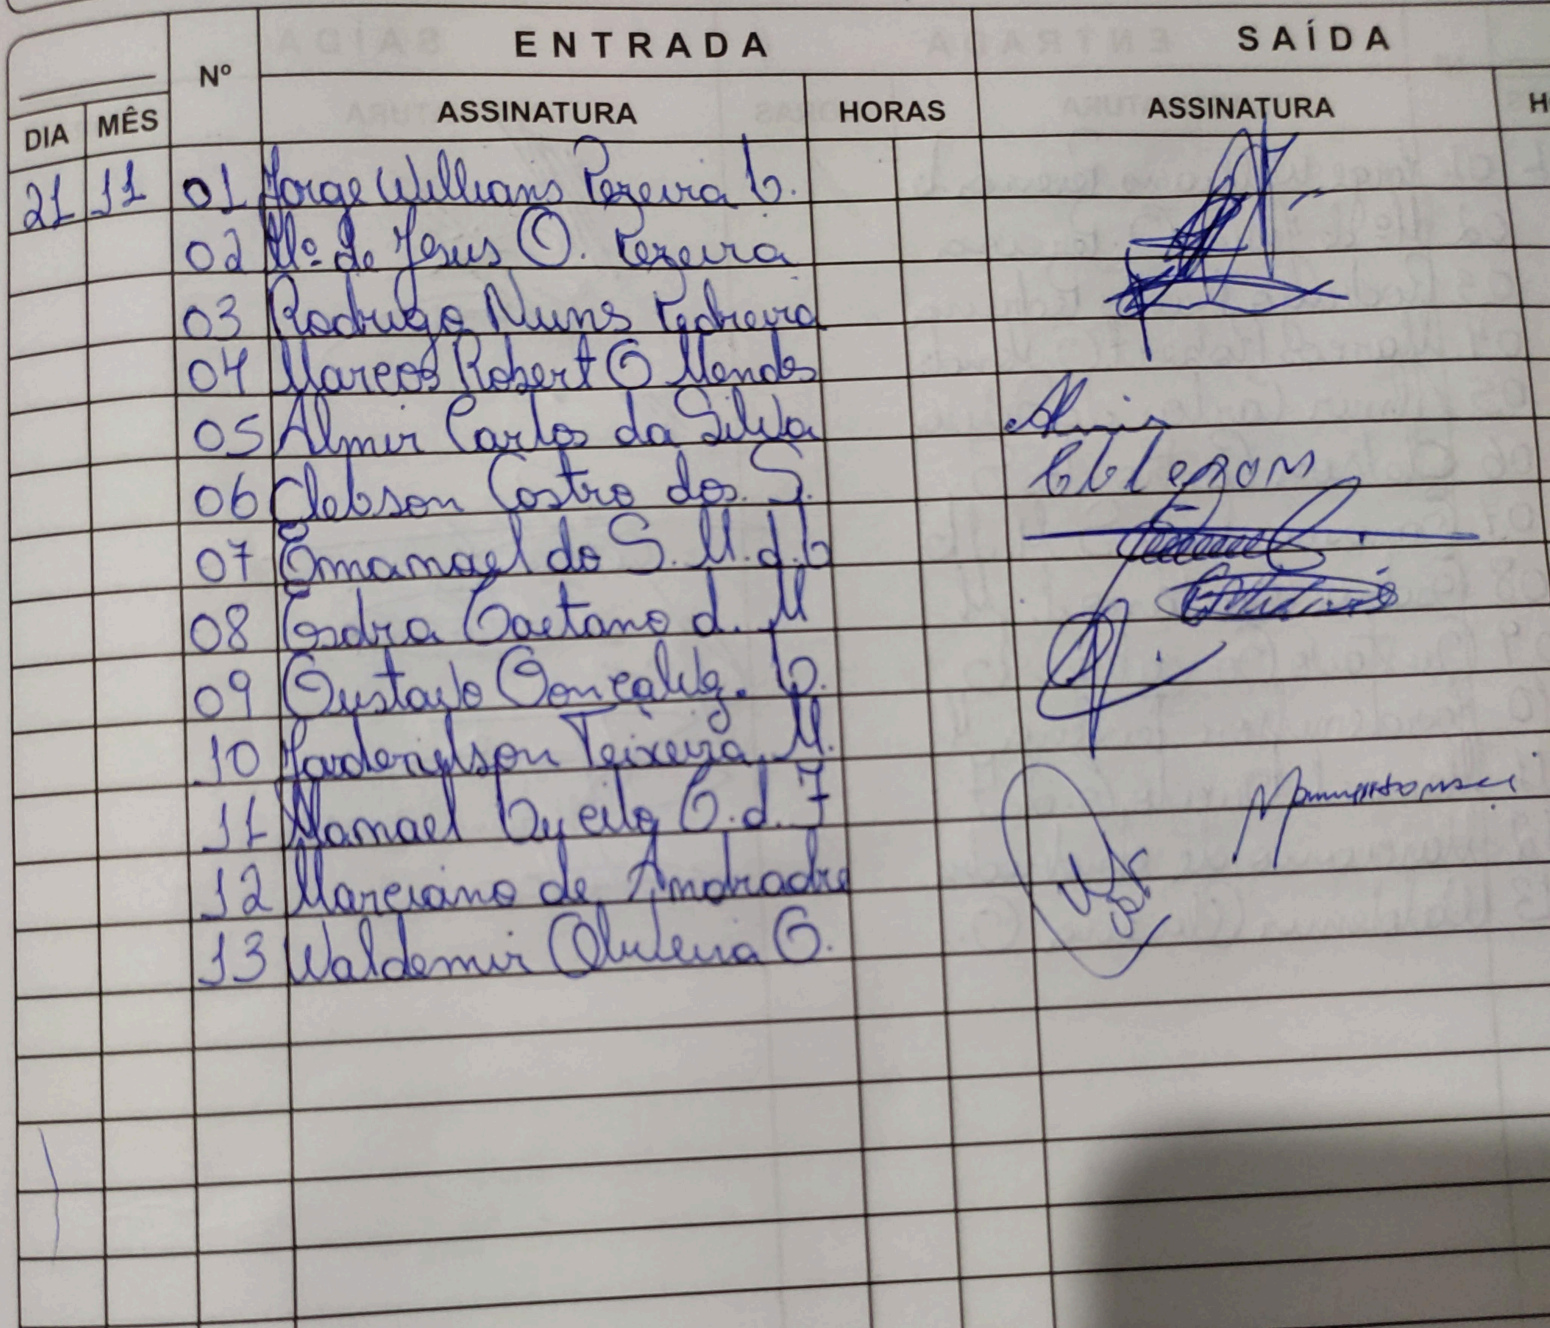 ENTRADA SAÍDA
Nº
DIA MÊS ASSINATURA HORAS ASSINATURA H
21 11 01 Jorge Willians Pereira C.
02 Mª de Jesus O. Pereira
03 Rodrigo Nuns Pedreira
04 Marcos Robert G Mendes
05 Almir Carlos da Silva Almir
06 Clebson Castro dos. S.
07 Emanael do S. M. d. C
08 Esdra Caetano d. M
09 Gustavo Gonçalvz. C.
10 Jardenylson Teixeira M.
11 Manael d. F
12 Marciano de Andradre
13 Waldemir Oliveira G.